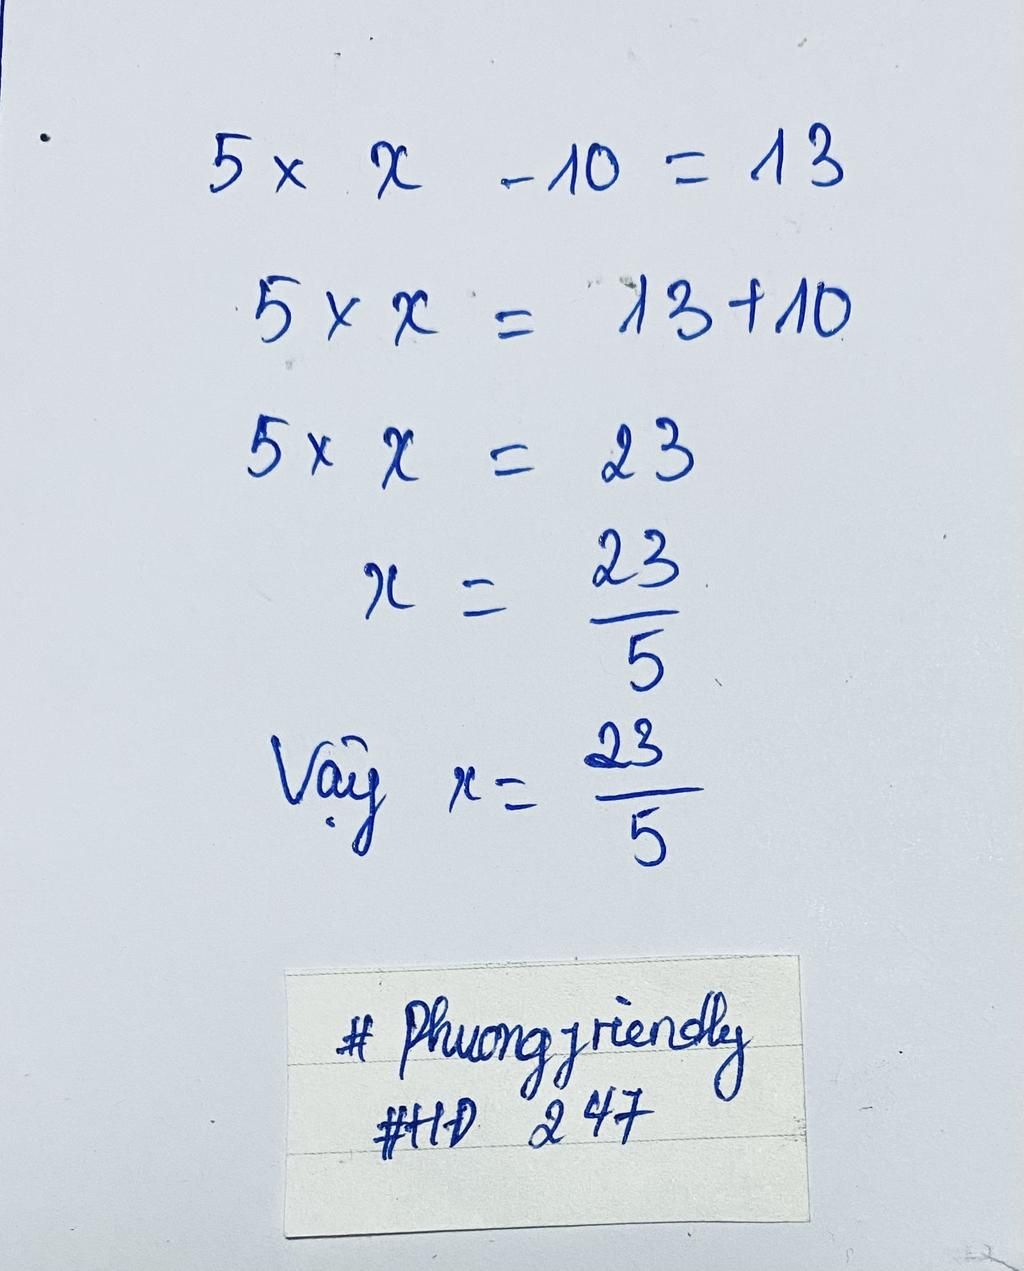 5 x x - 10 = 13
5 x x = 13 + 10
5 x x = 23
x = 23/5
Vậy x = 23/5
# Phuongfriendly
#HD 247